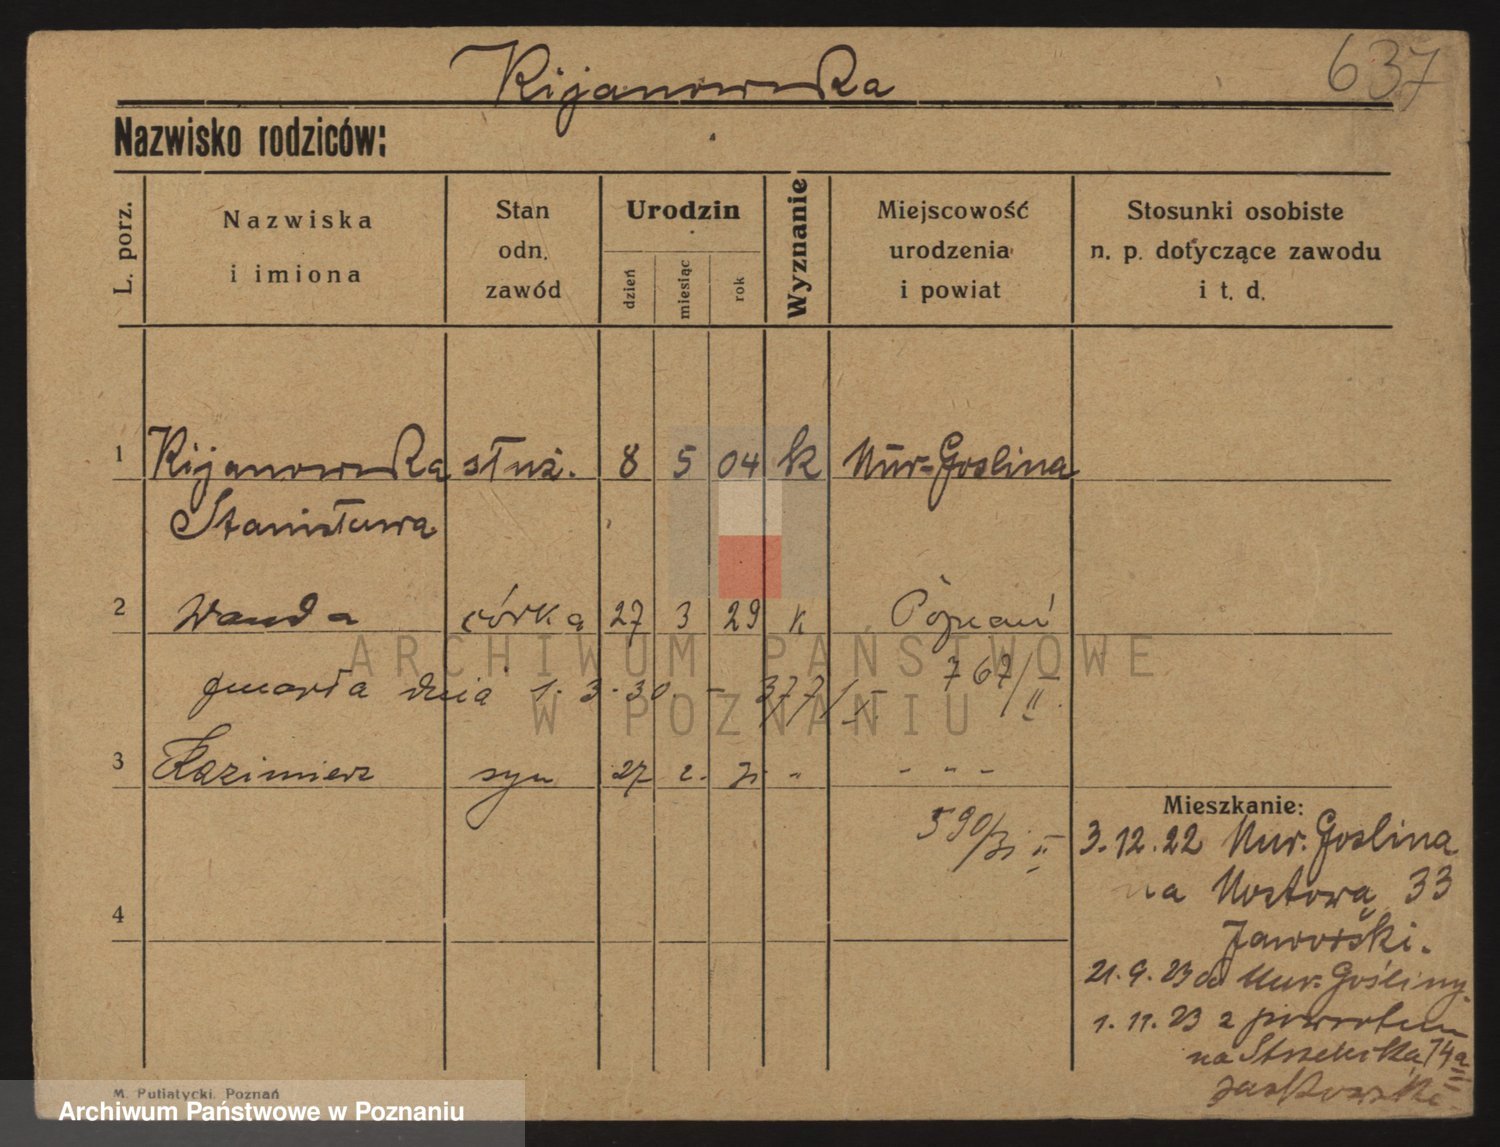 Kijanowska
637
Nazwisko rodziców:
L. porz.
Nazwiska
i imiona
Stan
odn.
zawód
Urodzin
dzień
miesiąc
rok
Wyznanie
Miejscowość
urodzenia
i powiat
Stosunki osobiste
n. p. dotyczące zawodu
i t. d.
1 Kijanowska służ. 8 5 04 k Mur-Goslina
Stanisława
2 Wanda córka 27 3 29 k Poznań
zmarła dnia 1. 3. 30. – 377/I 767/II
3 Kazimierz syn 27 2. 31 " " " "
590/31 II
4
Mieszkanie:
3.12.22 Mur. Goslina
na Mostowa 33
Jaworski.
21.9.23 do Mur. Gośliny.
1.11.23 z powrotem
na Strzelecka 14a
M. Putiatycki. Poznań
ARCHIWUM PAŃSTWOWE
W POZNANIU
Archiwum Państwowe w Poznaniu